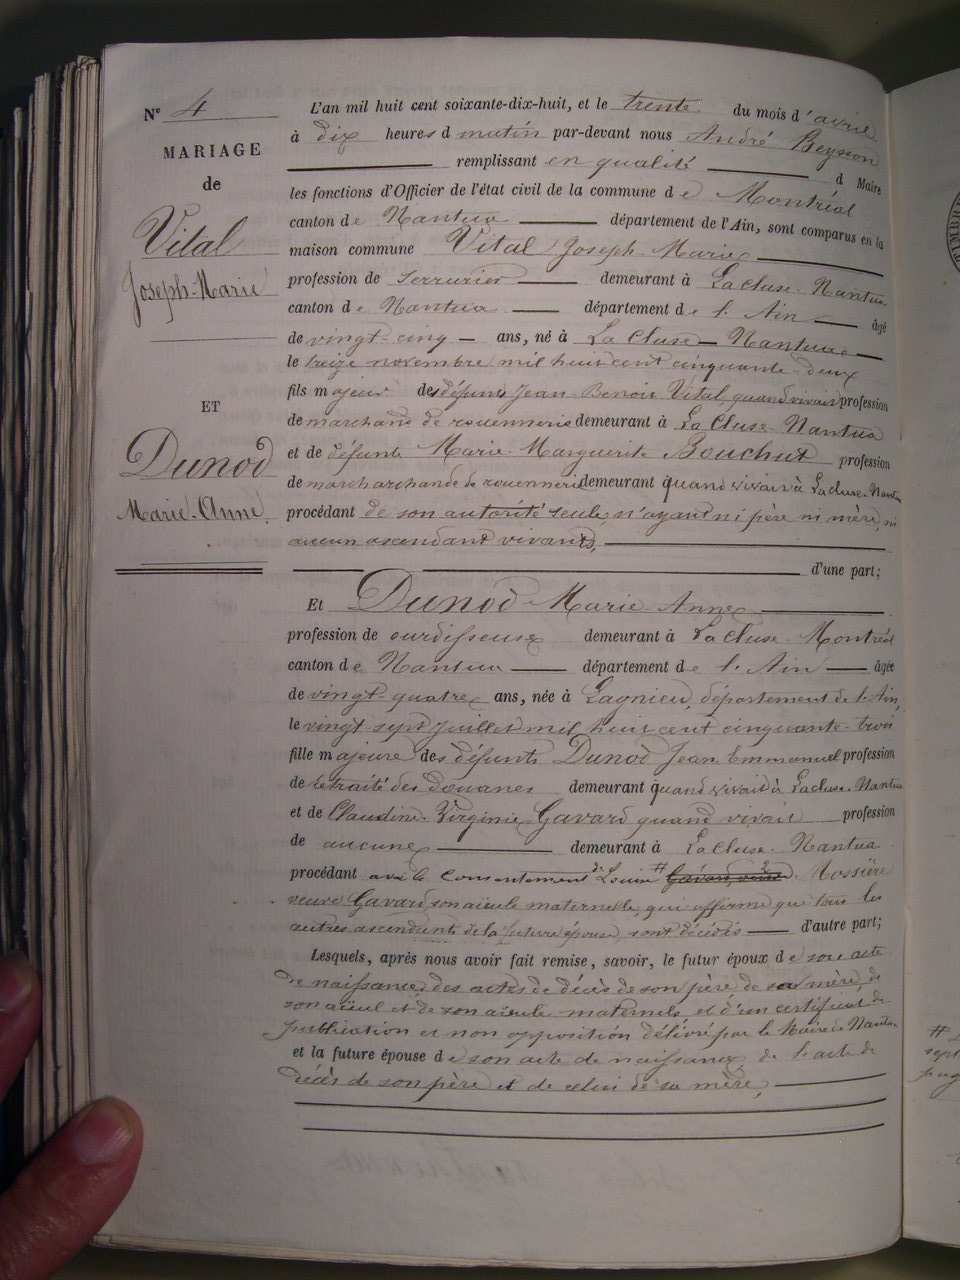 Nº 4
MARIAGE
de
Vital
Joseph-Marie
ET
Dunod
Marie-Anne
L'an mil huit cent soixante-dix-huit, et le trente du mois d'avril
à dix heures d matin par-devant nous André Beysson
remplissant en qualité d Maire
les fonctions d'Officier de l'état civil de la commune de Montréal
canton de Nantua département de l'Ain, sont comparus en la
maison commune Vital Joseph Marie
profession de serrurier demeurant à La Cluse-Nantua
canton de Nantua département de l'Ain âgé
de vingt-cinq ans, né à La Cluse-Nantua
le treize novembre mil huit cent cinquante-deux
fils majeur des défunts Jean Benoit Vital, quand vivait profession
de marchand de rouennerie demeurant à La Cluse-Nantua
et de défunte Marie Marguerite Bouchut profession
de marcharchande de rouennerie demeurant quand vivait à Lacluse-Nantua
procédant de son autorité seule, n'ayant ni père ni mère, ni
aucun ascendant vivants,
d'une part;
Et Dunod Marie Anne
profession de ourdisseuse demeurant à La Cluse-Montréal
canton de Nantua département de l'Ain âgée
de vingt-quatre ans, née à Lagnieu, département de l'Ain,
le vingt sept juillet mil huit cent cinquante-trois
fille majeure des défunts Dunod Jean Emmanuel profession
de retraité des douanes demeurant quand vivait à Lacluse-Nantua
et de Claudine-Virginie Gavard quand vivait profession
de aucune demeurant à La Cluse-Nantua
procédant avec le consentement de Louise # Gavard, veuve Mossière
veuve Gavard, son aïeule maternelle, qui affirme que tous les
autres ascendants de la future épouse, sont décédés d'autre part;
Lesquels, après nous avoir fait remise, savoir, le futur époux de son acte
de naissance, des actes de décès de son père, de sa mère, de
son aïeul et de son aïeule maternels, et d'un certificat de
publication et non opposition délivré par le Maire de Nantua
et la future épouse de son acte de naissance de l'acte de
décès de son père et de celui de sa mère,